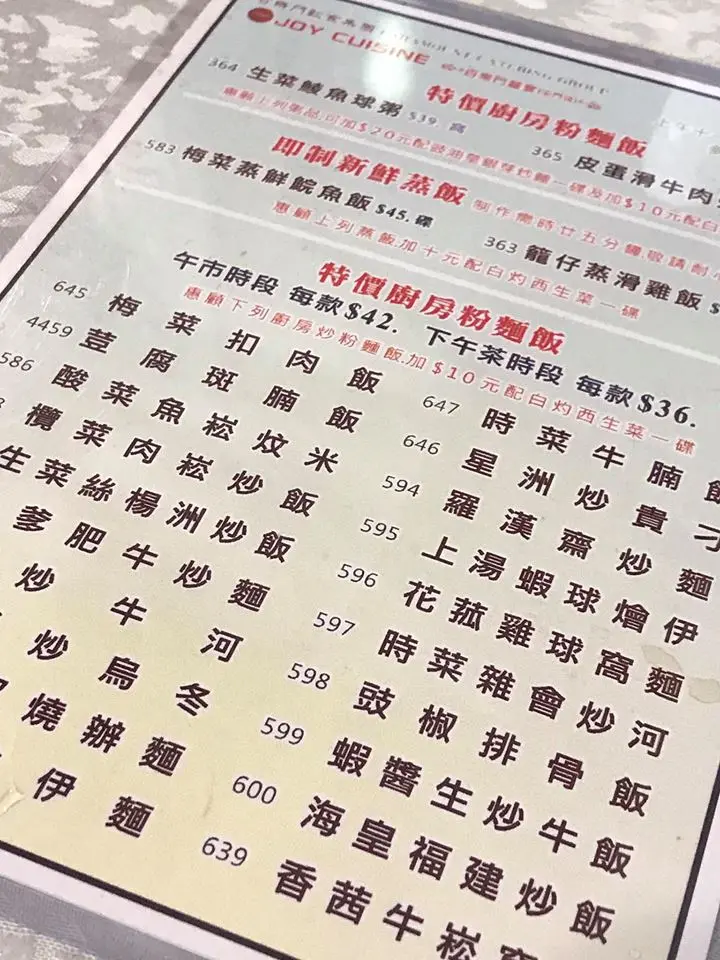 JOY CUISINE
特價廚房粉麵飯
364 生菜鯪魚球粥 $39. 窩
365 皮蛋滑牛肉
惠顧上列粥品,可加$20元配豉油皇銀芽炒麵一碟及加$10元配白
即制新鮮蒸飯 制作需時廿五分鐘,敬請耐
583 梅菜蒸鮮鯇魚飯 $45. 碟
363 籠仔蒸滑雞飯
惠顧上列蒸飯,加十元配白灼西生菜一碟
特價廚房粉麵飯
午市時段 每款$42. 下午茶時段 每款$36.
惠顧下列廚房炒粉麵飯,加$10元配白灼西生菜一碟
645 梅菜扣肉飯
4459 荳腐斑腩飯
586 酸菜魚崧炆米
欖菜肉崧炒飯
生菜絲楊洲炒飯
爹肥牛炒麵
炒牛河
炒烏冬
燒辦麵
伊麵
647 時菜牛腩飯
646 星洲炒貴刁
594 羅漢齋炒麵
595 上湯蝦球燴伊
596 花菰雞球窩麵
597 時菜雜會炒河
598 豉椒排骨飯
599 蝦醬生炒牛飯
600 海皇福建炒飯
639 香茜牛崧窩